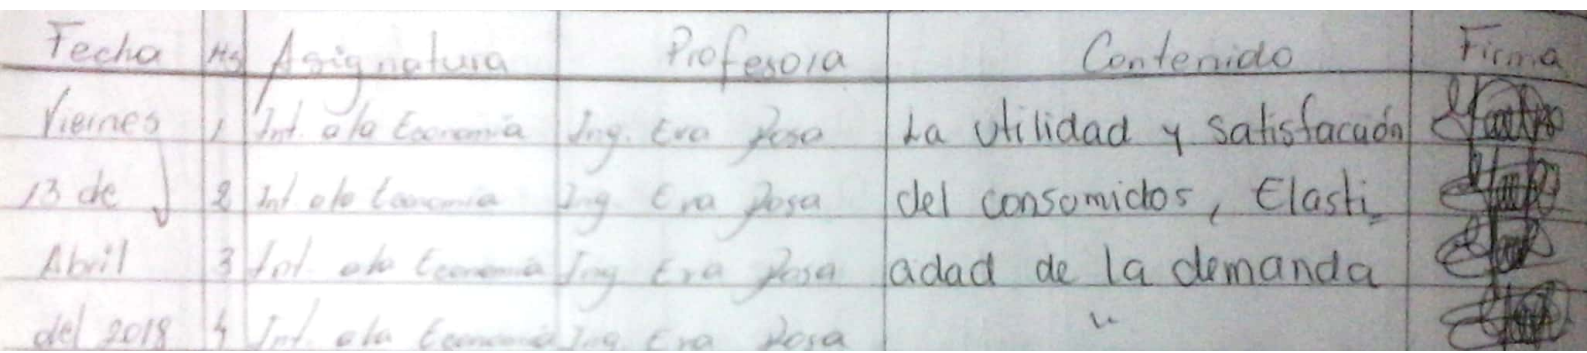 Fecha Hs Asignatura Profesora Contenido Firma
Viernes 1 Int. a la Economía Ing. Eva Rosa La Utilidad y satisfacción
13 de 2 Int. a la Economía Ing. Eva Rosa del consomidos, Elasti
Abril 3 Int. a la Economía Ing Eva Rosa adad de la demanda
del 2018 4 Int. a la Economía Ing. Eva Rosa "